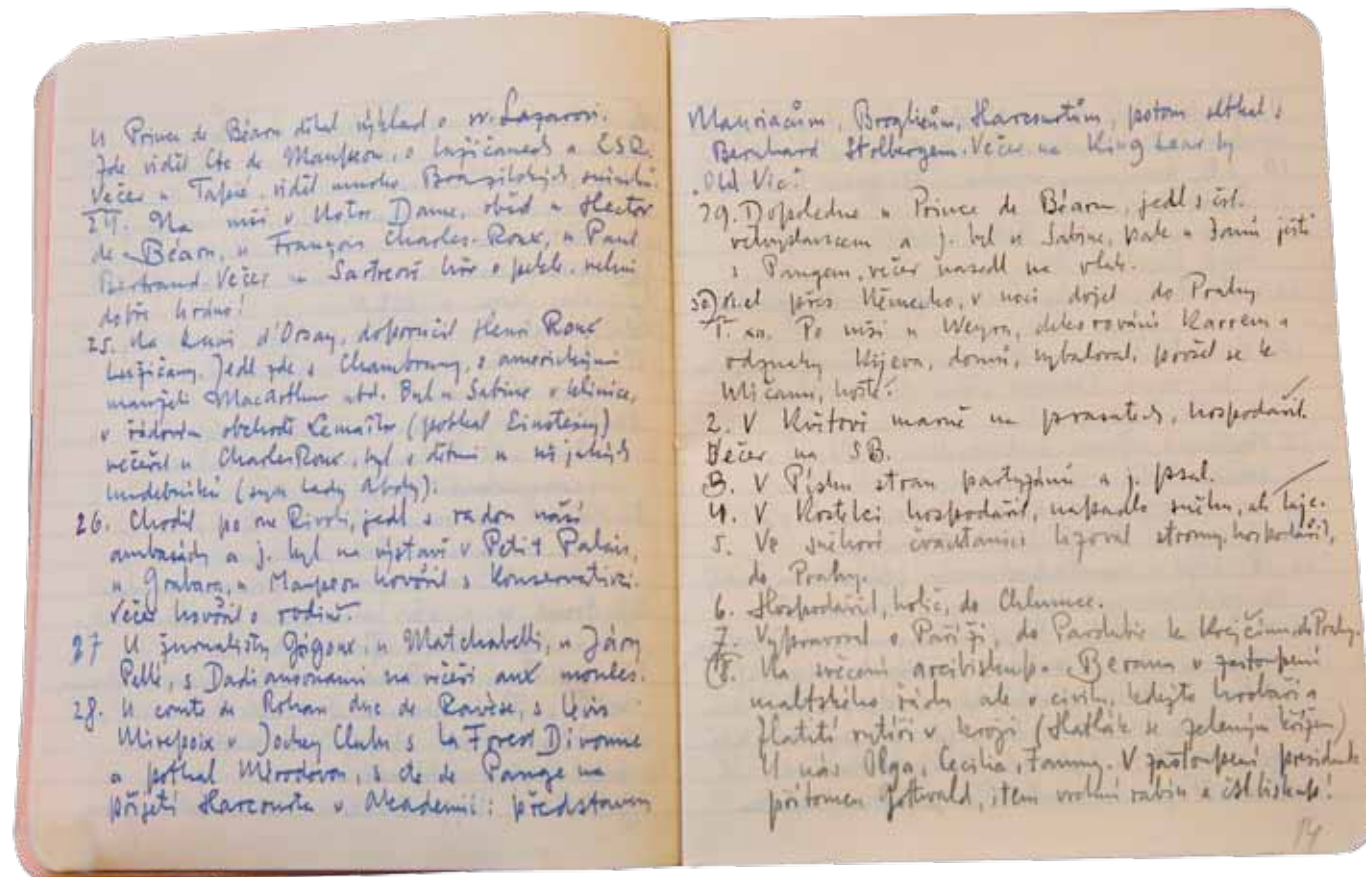 U Prince de Béarn dělal výklad o sv. Lazarovi.
Jde viděl Cte de Maupeou, o Lužičanech a ČSR.
Večer u Tapié, viděl mnoho Brazilských snímků.
24. Na mši v Notre Dame, oběd u Hector
de Béarn, u François Charles-Roux, u Paul
Bertrand. Večer na Sartreově hře o pekle, velmi
dobře hráno!
25. Na Quai d'Orsay, doporučil Henri Roux
Lužičany. Jedl zde s Chambrany, s americkými
manželi MacArthur atd. Byl u Sabine v klinice,
v řádovém obchodě Lemaître (potkal Einsteiny)
večeřel u Charles Roux, byl s dětmi u nějakých
hudebníků (syn Lady Abdy).
26. Chodil po rue Rivoli, jedl s radou naší
ambasády a j. byl na výstavě v Petit Palais,
u Grabara, u Maupeou hovořil s Konservativci.
Večer hovořil o rodině.
27 U žurnalisty Gigoux, u Matchabelli, u Járy
Pellé, s Dadianonami na večeři aux moules.
28. U comte de Rohan duc de Ravèse, s Lévis
Mirepoix v Jockey Clubu s La Forest Divonne
a potkal Mérodovou, s cte de Pange na
přijetí Harcourta v Akademii: představen
Mauriacům, Broglieům, Harcourtům, potom setkal s
Bernhard Stolbergem. Večer na King Lear by
"Old Vic".
29. Dopoledne u Prince de Béarn, jedl s čsl.
velvyslancem a j. byl u Sabine, pak u Janů ještě
s Pangem, večer nasedl na vlak.
30) Jel přes Německo, v noci dojel do Prahy
1. Po mši u Weyra, dekorování Karrem a
odznaky Kijeva, domů, vybaloval, prošel se k
Vlčanu, hosté.
2. V Květově marně na prasatech, hospodařil.
Večer na SB.
3. V Písku stran partyzánů a j. psal.
4. V Kostelci hospodařil, napadlo sněhu, ale taje.
5. Ve sněhové chumelenici lizoval stromy, hospodařil,
do Prahy.
6. Hospodařil, holič, do Chlumce.
7. Vypravoval o Paříži, do Pardubic ke Krejčímu, do Prahy.
8. Na svěcení arcibiskupa Berana v zastoupení
maltského řádu ale v civilu, kdežto hrobaři a
zlatití rytíři v kroji (Hatlák se zeleným křížem)
U nás Olga, Cecilia, Fanny. V zastoupení presidenta
přítomen Gottwald, item vrchní rabín a čsl biskup!
14